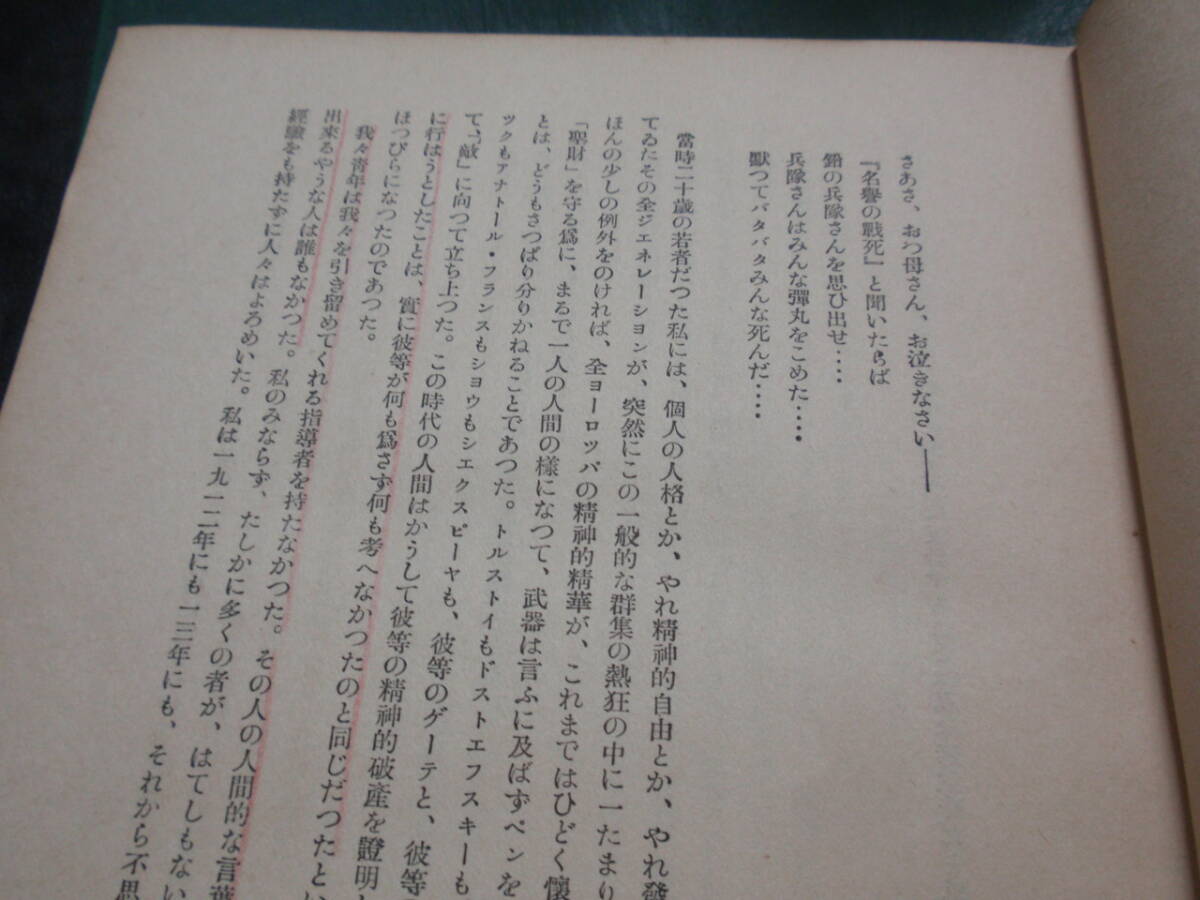 さあさ、おつ母さん、お泣きなさい——
『名譽の戰死』と聞いたらば
鉛の兵隊さんを思ひ出せ‥‥
兵隊さんはみんな彈丸をこめた‥‥
獸つてバタバタみんな死んだ‥‥
當時二十歲の若者だつた私には、個人の人格とか、やれ精神的自由とか、やれ發
てゐたその全ジエネレーシヨンが、突然にこの一般的な群集の熱狂の中に一たまり
ほんの少しの例外をのければ、全ヨーロツパの精神的精華が、これまではひどく懷
「聖財」を守る爲に、まるで一人の人間の樣になつて、武器は言ふに及ばずペンを
とは、どうもさつぱり分りかねることであつた。トルストイもドストエフスキーも
ツクもアナトール・フランスもシヨウもシエクスピーヤも、彼等のゲーテと、彼等
て、「敵」に向つて立ち上つた。この時代の人間はかうして彼等の精神的破產を證明
に行はうとしたことは、實に彼等が何も爲さず何も考へなかつたのと同じだつたとい
ほつぴらになつたのであつた。
我々靑年は我々を引き留めてくれる指導者を持たなかつた。その人の人間的な言葉
出來るやうな人は誰もなかつた。私のみならず、たしかに多くの者が、はてしもない
經驗をも持たずに人々はよろめいた。私は一九一二年にも一三年にも、それから不思